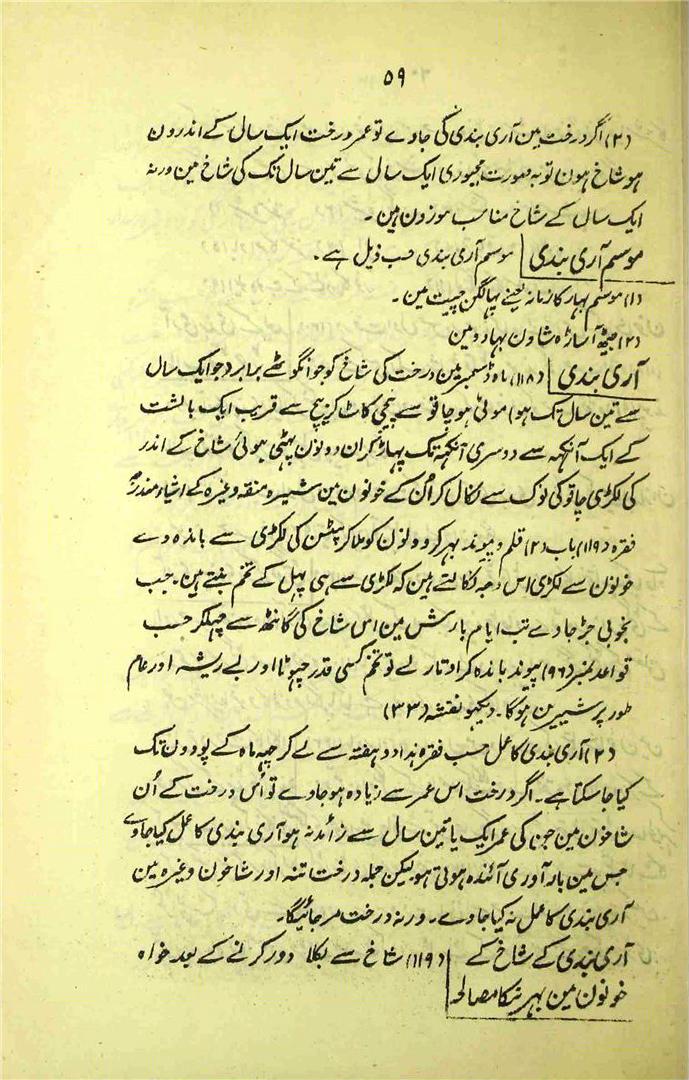 ۵۹
(۲) اگر درخت مین آری بندی کی جاوے تو عمر درخت ایک سال کے اندرون
ہو شاخ ہون تو بہ صورت مجبوری ایک سال سے تین سال تک کی شاخ مین ورنہ
ایک سال کے شاخ مناسب موزون ہین ۔
موسم آری بندی موسم آری بندی حسب ذیل ہے ۔
(۱) موسم بہار کا زمانہ یعنے پہالگن چیت مین ۔
(۲) جیٹھ آساڑہ شاون بہادو مین
آری بندی (۱۱۸) ماہ ڈسمبر مین درخت کی شاخ کو جو انگوٹھے برابر (جو ایک سال
سے تین سال تک ہو) موٹی ہو چاقو سے بیچ کاٹ کر بیچ سے قریب ایک بالشت
کے ایک آنکہہ سے دوسری آنکہہ تک پہاڑ کر ان دونون پہٹی ہوئی شاخ کے اندر
کی لکڑی چاقو کی نوک سے نکال کر اُن کے خونون مین شیرہ منقہ وغیرہ کے اشیاء مندرجہ
فقرہ (۱۱۹) باب (۲) قلم و پیوند بہر کر دونون کو ملا کر پٹسن کی لکڑی سے باندہ دے
خولون سے لکڑی اس وجہ نکالتے ہین کہ لکڑی سے ہی پہل کے تخم بنتے ہین ۔ جب
بخوبی جڑ جاوے تب ایام بارش مین اس شاخ کی گانٹھ سے چہلکر حسب
قواعد نمبر (۹۶) پیوند باندہ کر اوتار لے تو تخم کسی قدر چہوٹا اور بے ریشہ اور عام
طور پر شیرین ہوگا ۔ دیکہو نقشہ (۳۳)
(۲) آری بندی کا عمل حسب فقرہ ہذا دو ہفتہ سے لے کر چہہ ماہ کے پودون تک
کیا جا سکتا ہے ۔ اگر درخت اس عمر سے زیادہ ہو جاوے تو اُس درخت کے اُن
شاخون مین جن کی عمر ایک یا تین سال سے زائد نہ ہو آری بندی کا عمل کیا جاوے
جس مین بار آوری آئندہ ہوتی ہو لیکن جملہ درخت تنہ اور شاخون وغیرہ مین
آری بندی کا عمل نہ کیا جاوے ۔ ورنہ درخت مر جائیگا ۔
آری بندی کے شاخ کے (۱۱۹) شاخ سے بکلا دور کرنے کے بعد خواہ
خونون مین بہرنیکا مصالحہ